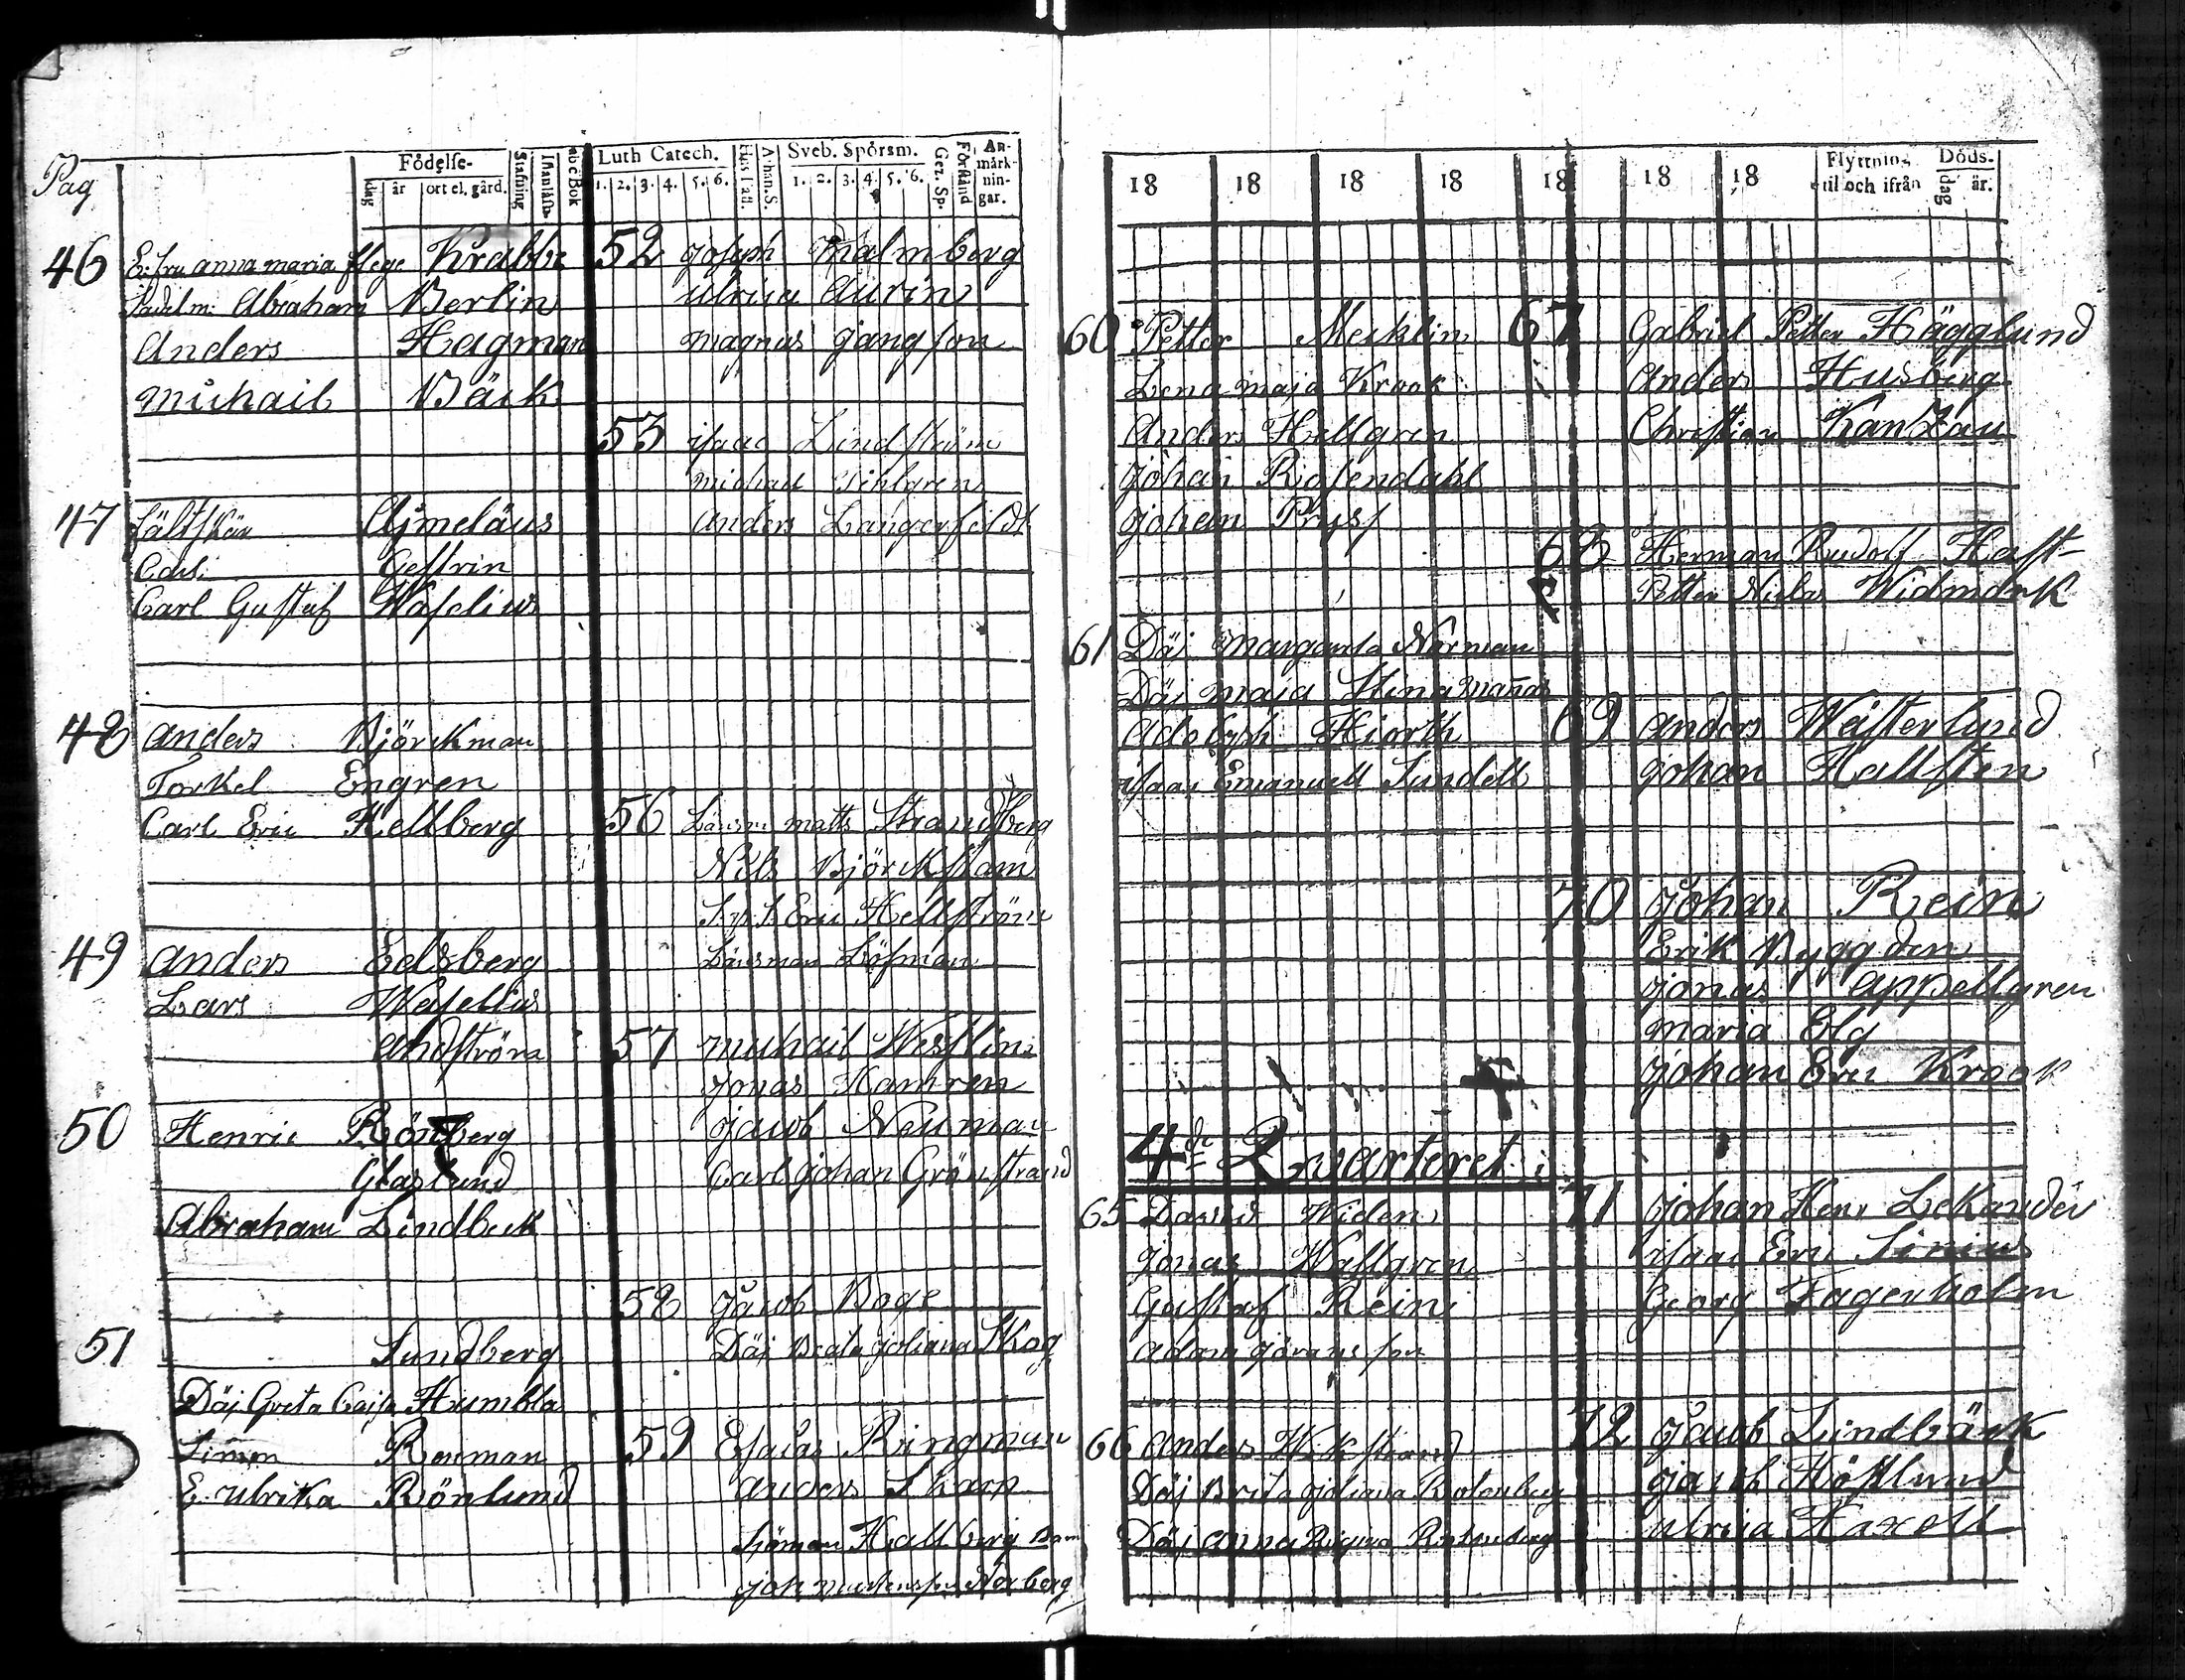 Pag
Födelse-
dag
år
ort el. gård.
Stafning
Innanläsn.
abc Bok
Luth Catech.
1. 2. 3. 4. 5. 6.
Hus Tafl.
Athan. S.
Sveb. Spörsm.
1. 2. 3. 4. 5. 6.
Gez. Sp.
Förstånd
An-
märk-
nin-
gar.
46 E: fru anna maria flege Krabbe
Sadelm: Abraham Berlin
Anders Hagman
Michail Bäck
47 fältskär Ajmeläus
Carl Gestrin
Carl Gustaf Waselius
48 Anders Björckman
Torkel Engren
Carl Eric Hellberg
49 Anders Edsberg
Lars Waselius
Andström
50 Henric Rönberg
Glaslund
Abraham Lindbeck
51 Sundberg
Däj Greta Cajsa Humbla
Simon Roxman
E. Ulrika Rönlund
52 Joseph Malmberg
Ulrica Aurin
Magnus Gangson
53 isaac Lindström
michael Sihlgren
Anders Langerfeldt
56 Länsm: matts Strandberg
Nils Björckstam
Eric Hellström
Länsman Löfman
57 Michail Westlin
Jonas Hamren
Jacob Neuman
Carl Johan Grönstrand
58 Jacob Boge
Däj Beata Joliana Skog
59 Esaias Ringman
Anders Skarp
Sjöman Hallberg
Joh Mårtensson Norberg
18 18 18 18 18 18 18
Flyttning
til och ifrån
Döds-
dag
år.
60 Petter Mecklin
Lena maja Krook
Anders Hellgren
Johan Rosendahl
Johan Pryss
61 Däj Margareta Norman
Däj maja Stina Mañas
Adolph Hiorth
isaac Emanuell Sundell
4de Qvarteret
65 David Widen
Jonas Wallgren
Gustaf Rein
Adam Göransson
66 Anders Wikstrand
Däj Brita Joliana Rotenburg
Däj Anna Regina Rotenburg
67 Gabriel Petter Hägglund
Anders Husberg
Christian Kantzau
68 Herman Rudolf Hast
Petter Niclas Widmark
69 Anders Westerlund
Johan Hallsten
70 Johan Rein
Erik Byggden
Jonas Appellgren
Maria Elg
Johan Eric Krook
71 Johan Henr Lekander
isaac Eric Sirius
Georg Fagerholm
72 Jacob Lindbäck
Jacob Höstlund
Ulrica Haxell